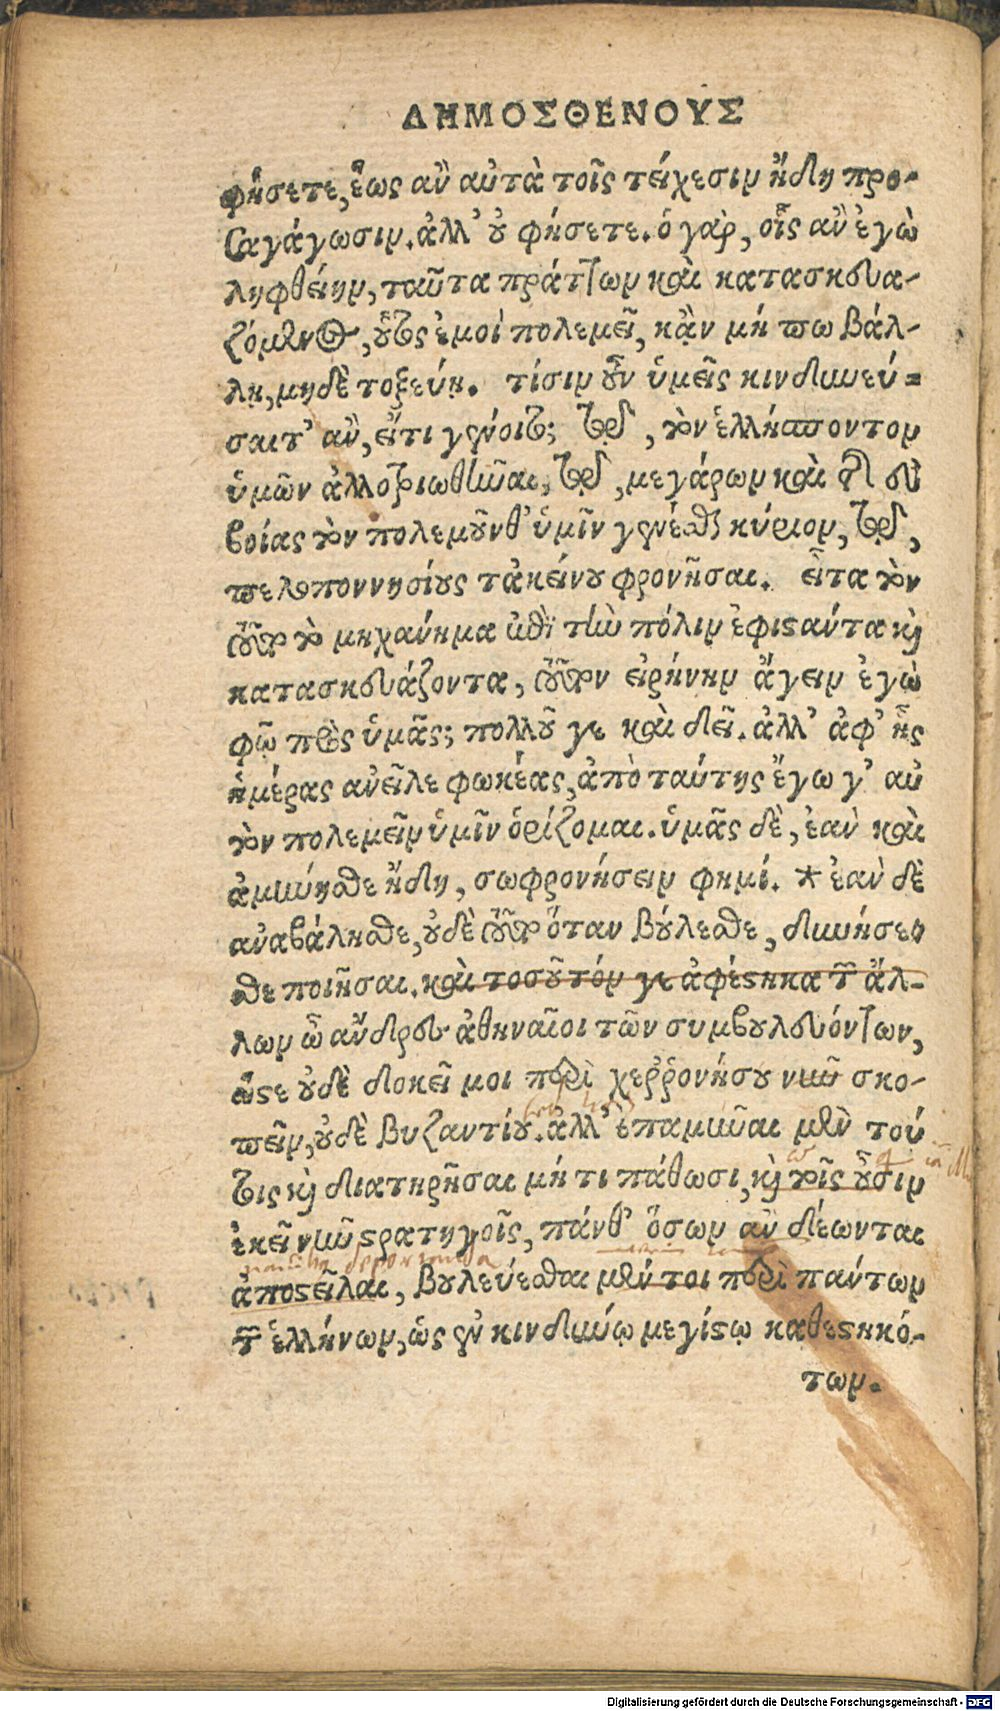 ΔΗΜΟΣΘΕΝΟΥΣ
φήσετε, ἕως ἂν αὐτὰ τοῖς τείχεσιν ἤδη προ-
σαγάγωσιν. ἀλλ' οὐ φήσετε. ὁ γὰρ, οἷς ἂν ἐγὼ
ληφθείην, ταῦτα πράττων καὶ κατασκευα-
ζόμενος, οὗτος ἐμοὶ πολεμεῖ, κἂν μή πω βάλ-
λῃ, μηδὲ τοξεύῃ. τίσιν οὖν ὑμεῖς κινδυνεύ=
σαιτ' ἂν, εἴ τι γένοιτο; τῷ, τὸν ἑλλήσποντον
ὑμῶν ἀλλοτριωθῆναι, τῷ, μεγάρων καὶ τῆς εὐ
βοίας τὸν πολεμοῦνθ' ὑμῖν γενέσθαι κύριον, τῷ,
πελοποννησίους τἀκείνου φρονῆσαι. εἶτα τὸν
τοῦτο τὸ μηχάνημα ἐπὶ τὴν πόλιν ἐφιστάντα καὶ
κατασκευάζοντα, τοῦτον εἰρήνην ἄγειν ἐγὼ
φῶ πρὸς ὑμᾶς; πολλοῦ γε καὶ δεῖ. ἀλλ' ἀφ' ἧς
ἡμέρας ἀνεῖλε φωκέας, ἀπὸ ταύτης ἔγωγ' αὐ
τὸν πολεμεῖν ὑμῖν ὁρίζομαι. ὑμᾶς δὲ, ἐὰν καὶ
ἀμύνησθε ἤδη, σωφρονήσειν φημί. * ἐὰν δὲ
ἀναβάλησθε, οὐδὲ τοῦτο ὅταν βούλεσθε, δυνήσε
σθε ποιῆσαι. καὶ τοσοῦτόν γε ἀφέστηκα τῶν ἄλ-
λων ὦ ἄνδρες ἀθηναῖοι τῶν συμβουλευόντων,
ὥστε οὐδὲ δοκεῖ μοι περὶ χερρονήσου νῦν σκο-
πεῖν, οὐδὲ βυζαντίου. ἀλλ' ἐπαμῦναι μὲν τού
τοις καὶ διατηρῆσαι μή τι πάθωσι, καὶ τοῖς οὖσιν
ἐκεῖ νῦν στρατηγοῖς, πάνθ' ὅσων ἂν δέωνται
ἀποστεῖλαι, βουλεύεσθαι μέν τοι περὶ πάντων
τῶν ἑλλήνων, ὡς ἐν κινδύνῳ μεγίστῳ καθεστηκό-
των.
Digitalisierung gefördert durch die Deutsche Forschungsgemeinschaft - DFG